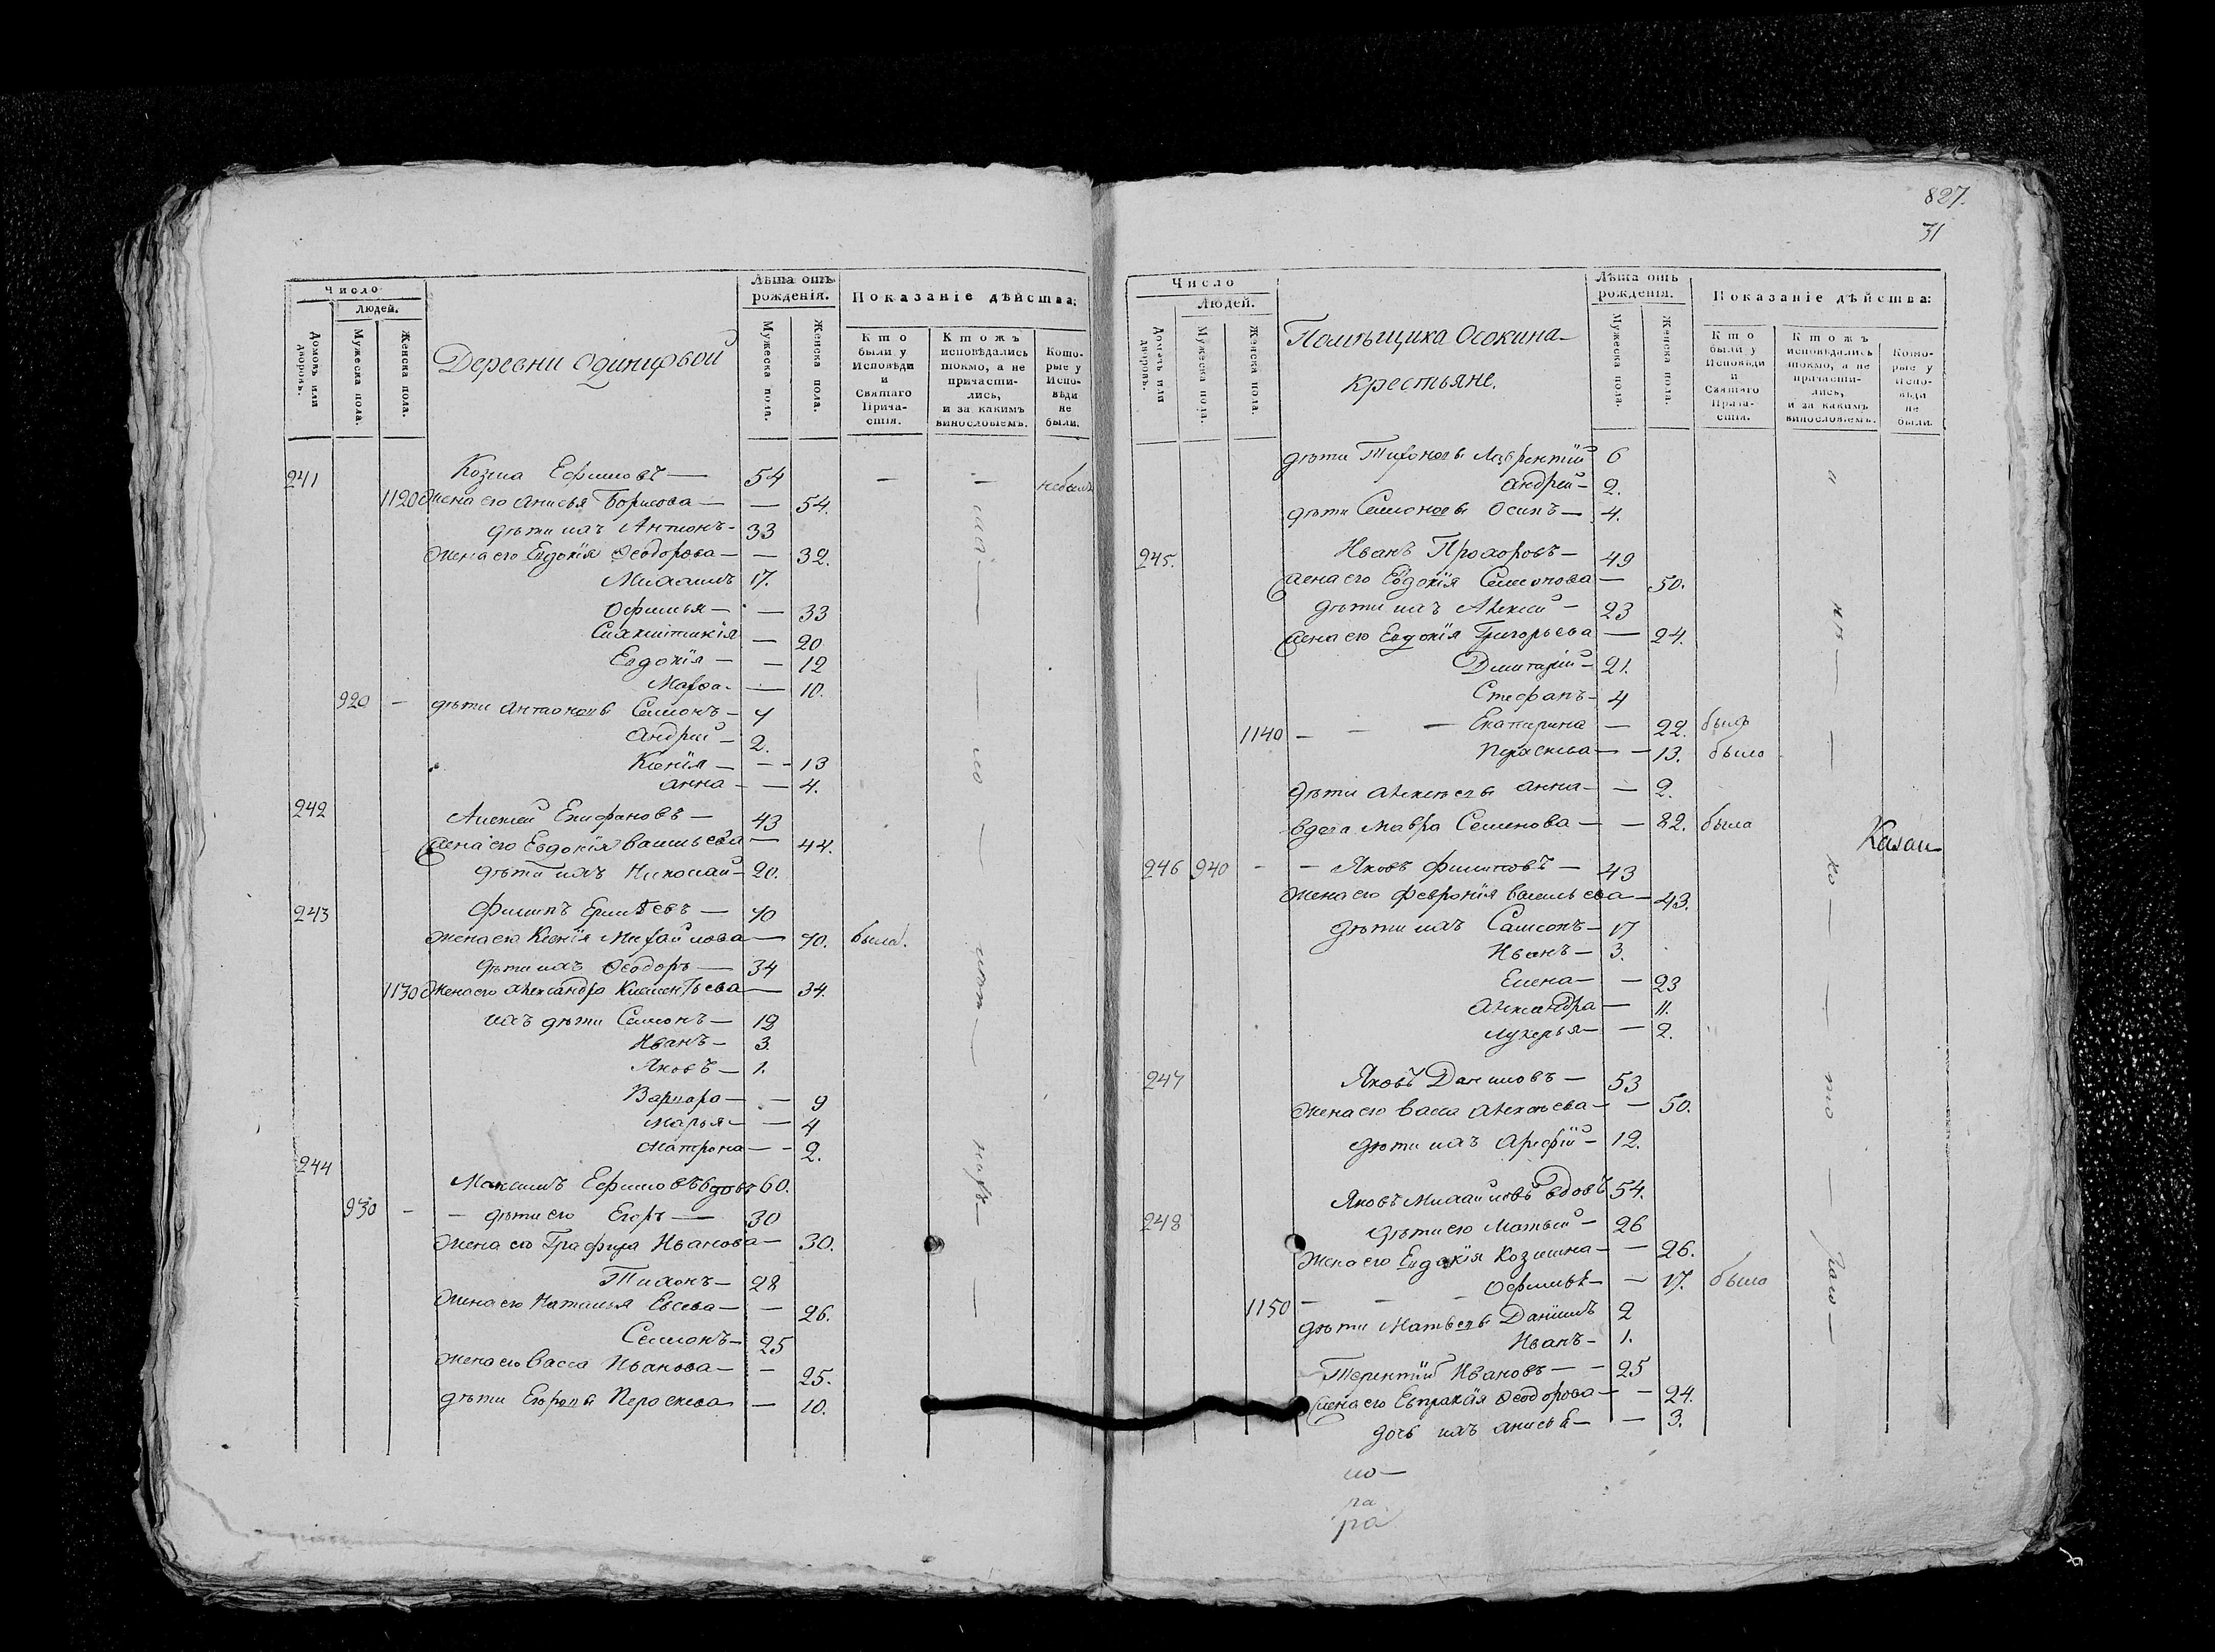 Число
Людей.
Домовъ или дворовъ.
Мужеска пола.
Женска пола.
Деревни Одинцовой
Лѣта отъ рожденія.
Мужеска пола.
Женска пола.
Показаніе дѣйства:
Кто были у Исповѣди и Святаго Причастія.
Ктожъ исповѣдались токмо, а не причастились, и за какимъ винословіемъ.
Которые у Исповѣди не были.
241 Козма Ефимовъ — 54 — — небылъ
1120 Жена его Анисья Борисова — — 54.
дѣти ихъ Антионъ — 33
Жена его Евдокія Ѳеодорова — — 32.
Михаилъ 17.
Офимья — — 33
— 20
Евдокія — — 12
Марѳа — — 10.
920 — дѣти Антионовы Семионъ — 7
Андрей — 2.
Ксенія — — 13
Анна — — 4.
242 Алексей Епифановъ — 43
Жена его Евдокія Васильева — 44.
дѣти ихъ Николай — 20.
243 Филипъ Ермѣевъ — 70
Жена его Ксенія Михайлова — 70. была.
дѣти ихъ Ѳеодоръ — 34
1130 Жена его Александра Климентьева — 34.
ихъ дѣти Семионъ — 12
Иванъ — 3.
Яковъ — 1.
Варвара — — 9
Марья — — 4
Матрона — — 2.
244 Максимъ Ефимовъ вдовъ 60.
930 — — дѣти его Егоръ — 30
Жена его Графира Иванова — 30.
Тихонъ — 28
Жена его Наталья Евсева — — 26.
Семионъ — 25
Жена его Васса Иванова — — 25.
дѣти Егоровы Пераскева — 10.
827.
31
Число
Людей.
Домовъ или дворовъ.
Мужеска пола.
Женска пола.
Помѣщика Осокина
крестьяне.
Лѣта отъ рожденія.
Мужеска пола.
Женска пола.
Показаніе дѣйства:
Кто были у Исповѣди и Святаго Причастія.
Ктожъ исповѣдались токмо, а не причастились, и за какимъ винословіемъ.
Которые у Исповѣди не были.
дѣти Тихоновы Лаврентій 6
Андрей — 2.
дѣти Семионовы Осипъ — 4.
245. Иванъ Прохоровъ — 49
Жена его Евдокія Семионова — 50.
дѣти ихъ Алексей — 23
Жена его Евдокія Григорьева — 24.
Димитрій — 21.
Стефанъ — 4
1140 — — — Екатерина — 22. была
Пераскева — — 13. была
дѣти Алексѣевы Анна — — 2.
вдова Мавра Семенова — — 82. была
Казан
246 940 — — Яковъ Филиповъ — 43
Жена его Февронія Васильева — 43.
дѣти ихъ Самсонъ — 17
Иванъ — 3.
Елена — — 23
Александра — 11.
Лукерья — — 2.
247 Яковъ Даниловъ — 53
Жена его Васса Алексѣева — — 50.
дѣти ихъ Арефій — 12.
248 Яковъ Михайловъ вдовъ 54.
дѣти его Матвей — 26
Жена его Евдокія Козмина — — 26.
1150 — — — Офимья — — 17. была
дѣти Матвеевы Даніилъ 2
Иванъ — 1.
Терентій Ивановъ — — 25
Жена его Евпраксія Ѳеодорова — — 24.
дочь ихъ Анисья — — 3.